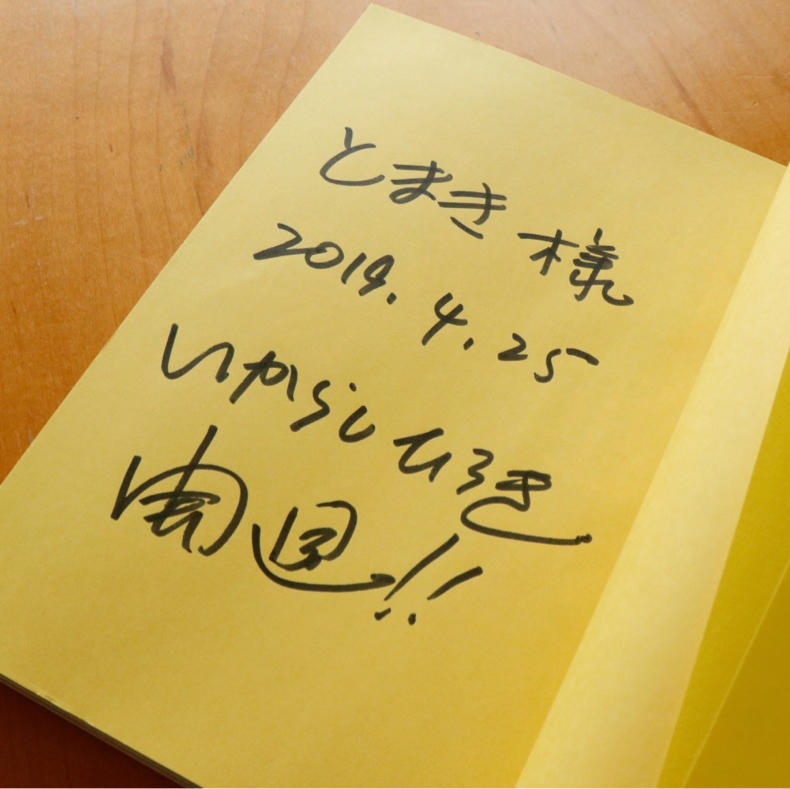 とまき 様
2019. 4. 25
いからし ひろき
開運!!